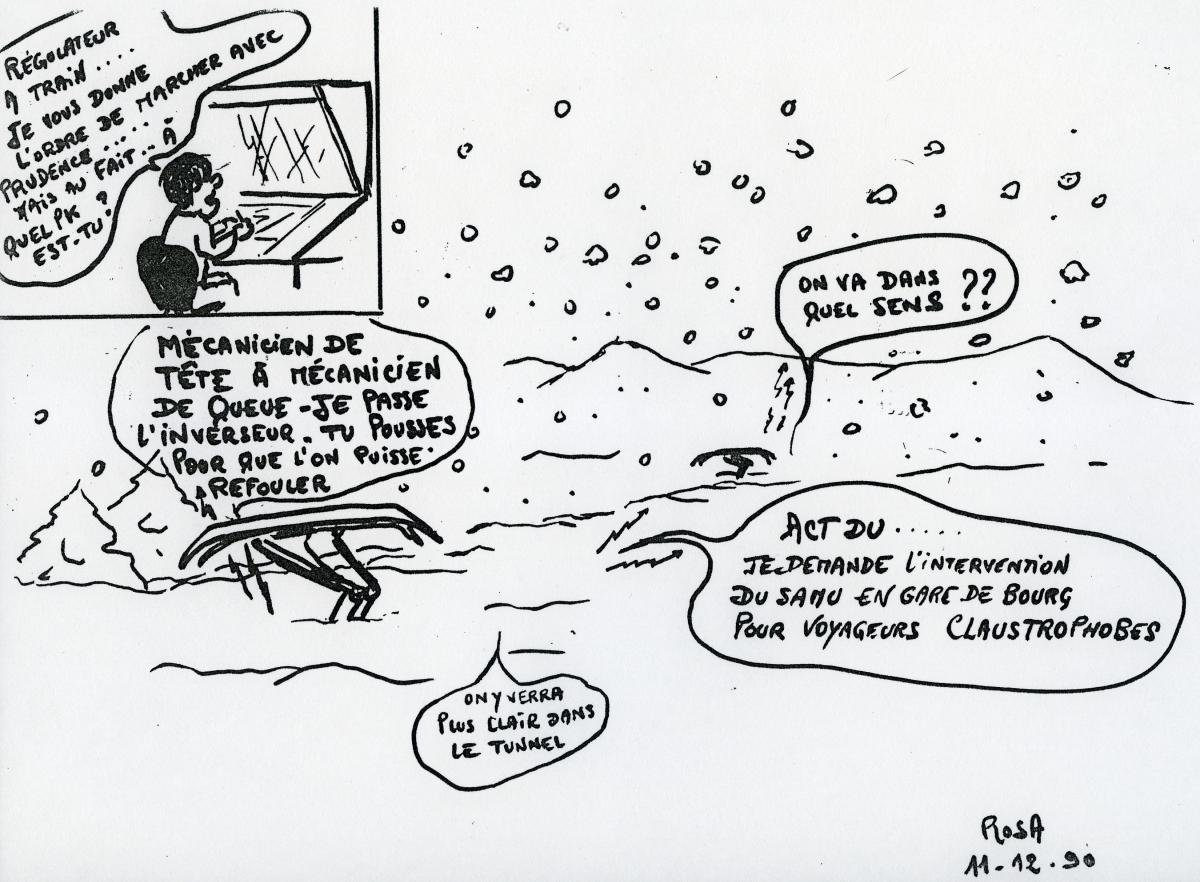 RÉGULATEUR
A TRAIN ....
JE VOUS DONNE
L'ORDRE DE MARCHER AVEC
PRUDENCE .....
MAIS AU FAIT... À
QUEL PK ?
EST-TU
MÉCANICIEN DE
TÊTE À MÉCANICIEN
DE QUEUE - JE PASSE
L'INVERSEUR. TU POUSSES
POUR QUE L'ON PUISSE
REFOULER
ON VA DANS
QUEL SENS ??
ACT DU ......
JE DEMANDE L'INTERVENTION
DU SAMU EN GARE DE BOURG
POUR VOYAGEURS CLAUSTROPHOBES
ON Y VERRA
PLUS CLAIR DANS
LE TUNNEL
ROSA
11-12.90